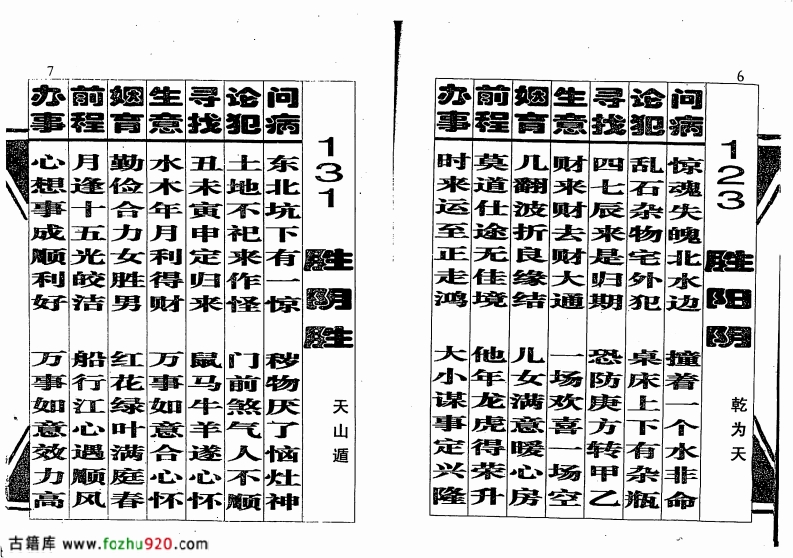 6
123 胜阳阴 乾为天
问病 惊魂失魄北水边 撞着一个水非命
论犯 乱石杂物宅外犯 桌床上下有杂瓶
寻找 四七辰来是归期 恐防庚方转甲乙
生意 财来财去财大通 一场欢喜一场空
姻育 几翻波折良缘结 儿女满意暖心房
前程 莫道仕途无佳境 他年龙虎得荣升
办事 时来运至正走鸿 大小谋事定兴隆
7
131 胜阴胜 天山遁
问病 东北坑下有一惊 秽物厌了恼灶神
论犯 土地不祀来作怪 门前煞气人不顺
寻找 丑未寅申定归来 鼠马牛羊遂心怀
生意 水木年月利得财 万事如意合心怀
姻育 勤俭合力女胜男 红花绿叶满庭春
前程 月逢十五光皎洁 船行江心遇顺风
办事 心想事成顺利好 万事如意效力高
古籍库 www.fozhu920.com